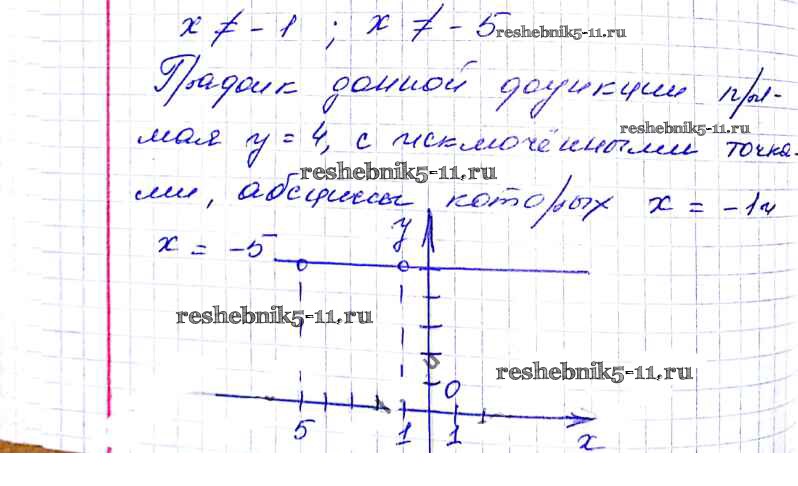 x ≠ -1 ; x ≠ -5
reshebnik5-11.ru
График данной функции пря-
reshebnik5-11.ru
мая y = 4, с исключёнными точка-
reshebnik5-11.ru
ми, абсциссы которых x = -1 и
x = -5
y
reshebnik5-11.ru
reshebnik5-11.ru
0
5 1 1 x